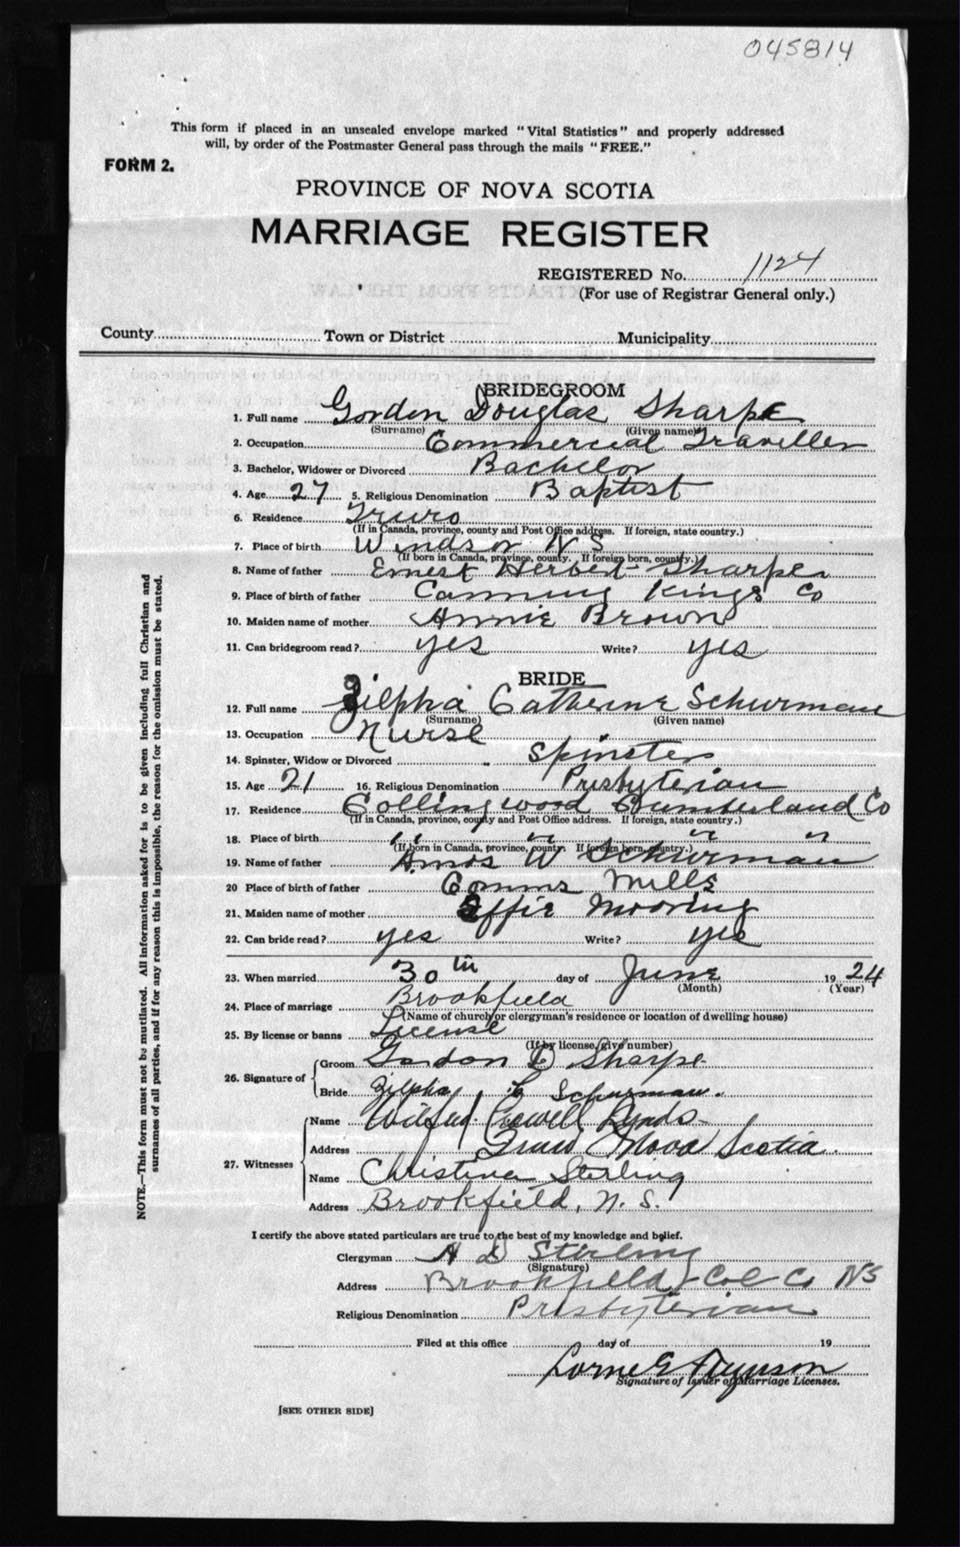 045814
This form if placed in an unsealed envelope marked "Vital Statistics" and properly addressed
will, by order of the Postmaster General pass through the mails "FREE."
FORM 2.
PROVINCE OF NOVA SCOTIA
MARRIAGE REGISTER
REGISTERED No. 1124
(For use of Registrar General only.)
County Town or District Municipality
BRIDEGROOM
1. Full name Gordon Douglas Sharpe
(Surname) (Given name)
2. Occupation Commercial Traveller
3. Bachelor, Widower or Divorced Bachelor
4. Age 27 5. Religious Denomination Baptist
6. Residence Truro
(If in Canada, province, county and Post Office address. If foreign, state country.)
7. Place of birth Windsor N S
(If born in Canada, province, county. If foreign born, country.)
8. Name of father Ernest Herbert Sharpe
9. Place of birth of father Canning Kings Co
10. Maiden name of mother Annie Brown
11. Can bridegroom read? yes Write? yes
BRIDE
12. Full name Zilpha Catherine Schurman
(Surname) (Given name)
13. Occupation Nurse
14. Spinster, Widow or Divorced Spinster
15. Age 21 16. Religious Denomination Presbyterian
17. Residence Collingwood Cumberland Co
(If in Canada, province, county and Post Office address. If foreign, state country.)
18. Place of birth " " " "
(If born in Canada, province, county. If foreign born, country.)
19. Name of father Amos W Schurman
20 Place of birth of father Conns Mills
21. Maiden name of mother Effie Mooring
22. Can bride read? yes Write? yes
23. When married 30th day of June 1924
(Month) (Year)
24. Place of marriage Brookfield
(Name of church or clergyman's residence or location of dwelling house)
25. By license or banns License
(If by license, give number)
26. Signature of Groom Gordon D Sharpe
Bride Zilpha C Schurman.
27. Witnesses Name Wilfred Crowell Rynds
Address Truro Nova Scotia.
Name Christina Sterling
Address Brookfield, N. S.
I certify the above stated particulars are true to the best of my knowledge and belief.
Clergyman A D Sterling
(Signature)
Address Brookfield Col Co NS
Religious Denomination Presbyterian
Filed at this office day of 19
Lorne E
Signature of Issuer of Marriage Licenses.
[SEE OTHER SIDE]
NOTE.—This form must not be mutilated. All information asked for is to be given including full Christian and
surnames of all parties, and if for any reason this is impossible, the reason for the omission must be stated.